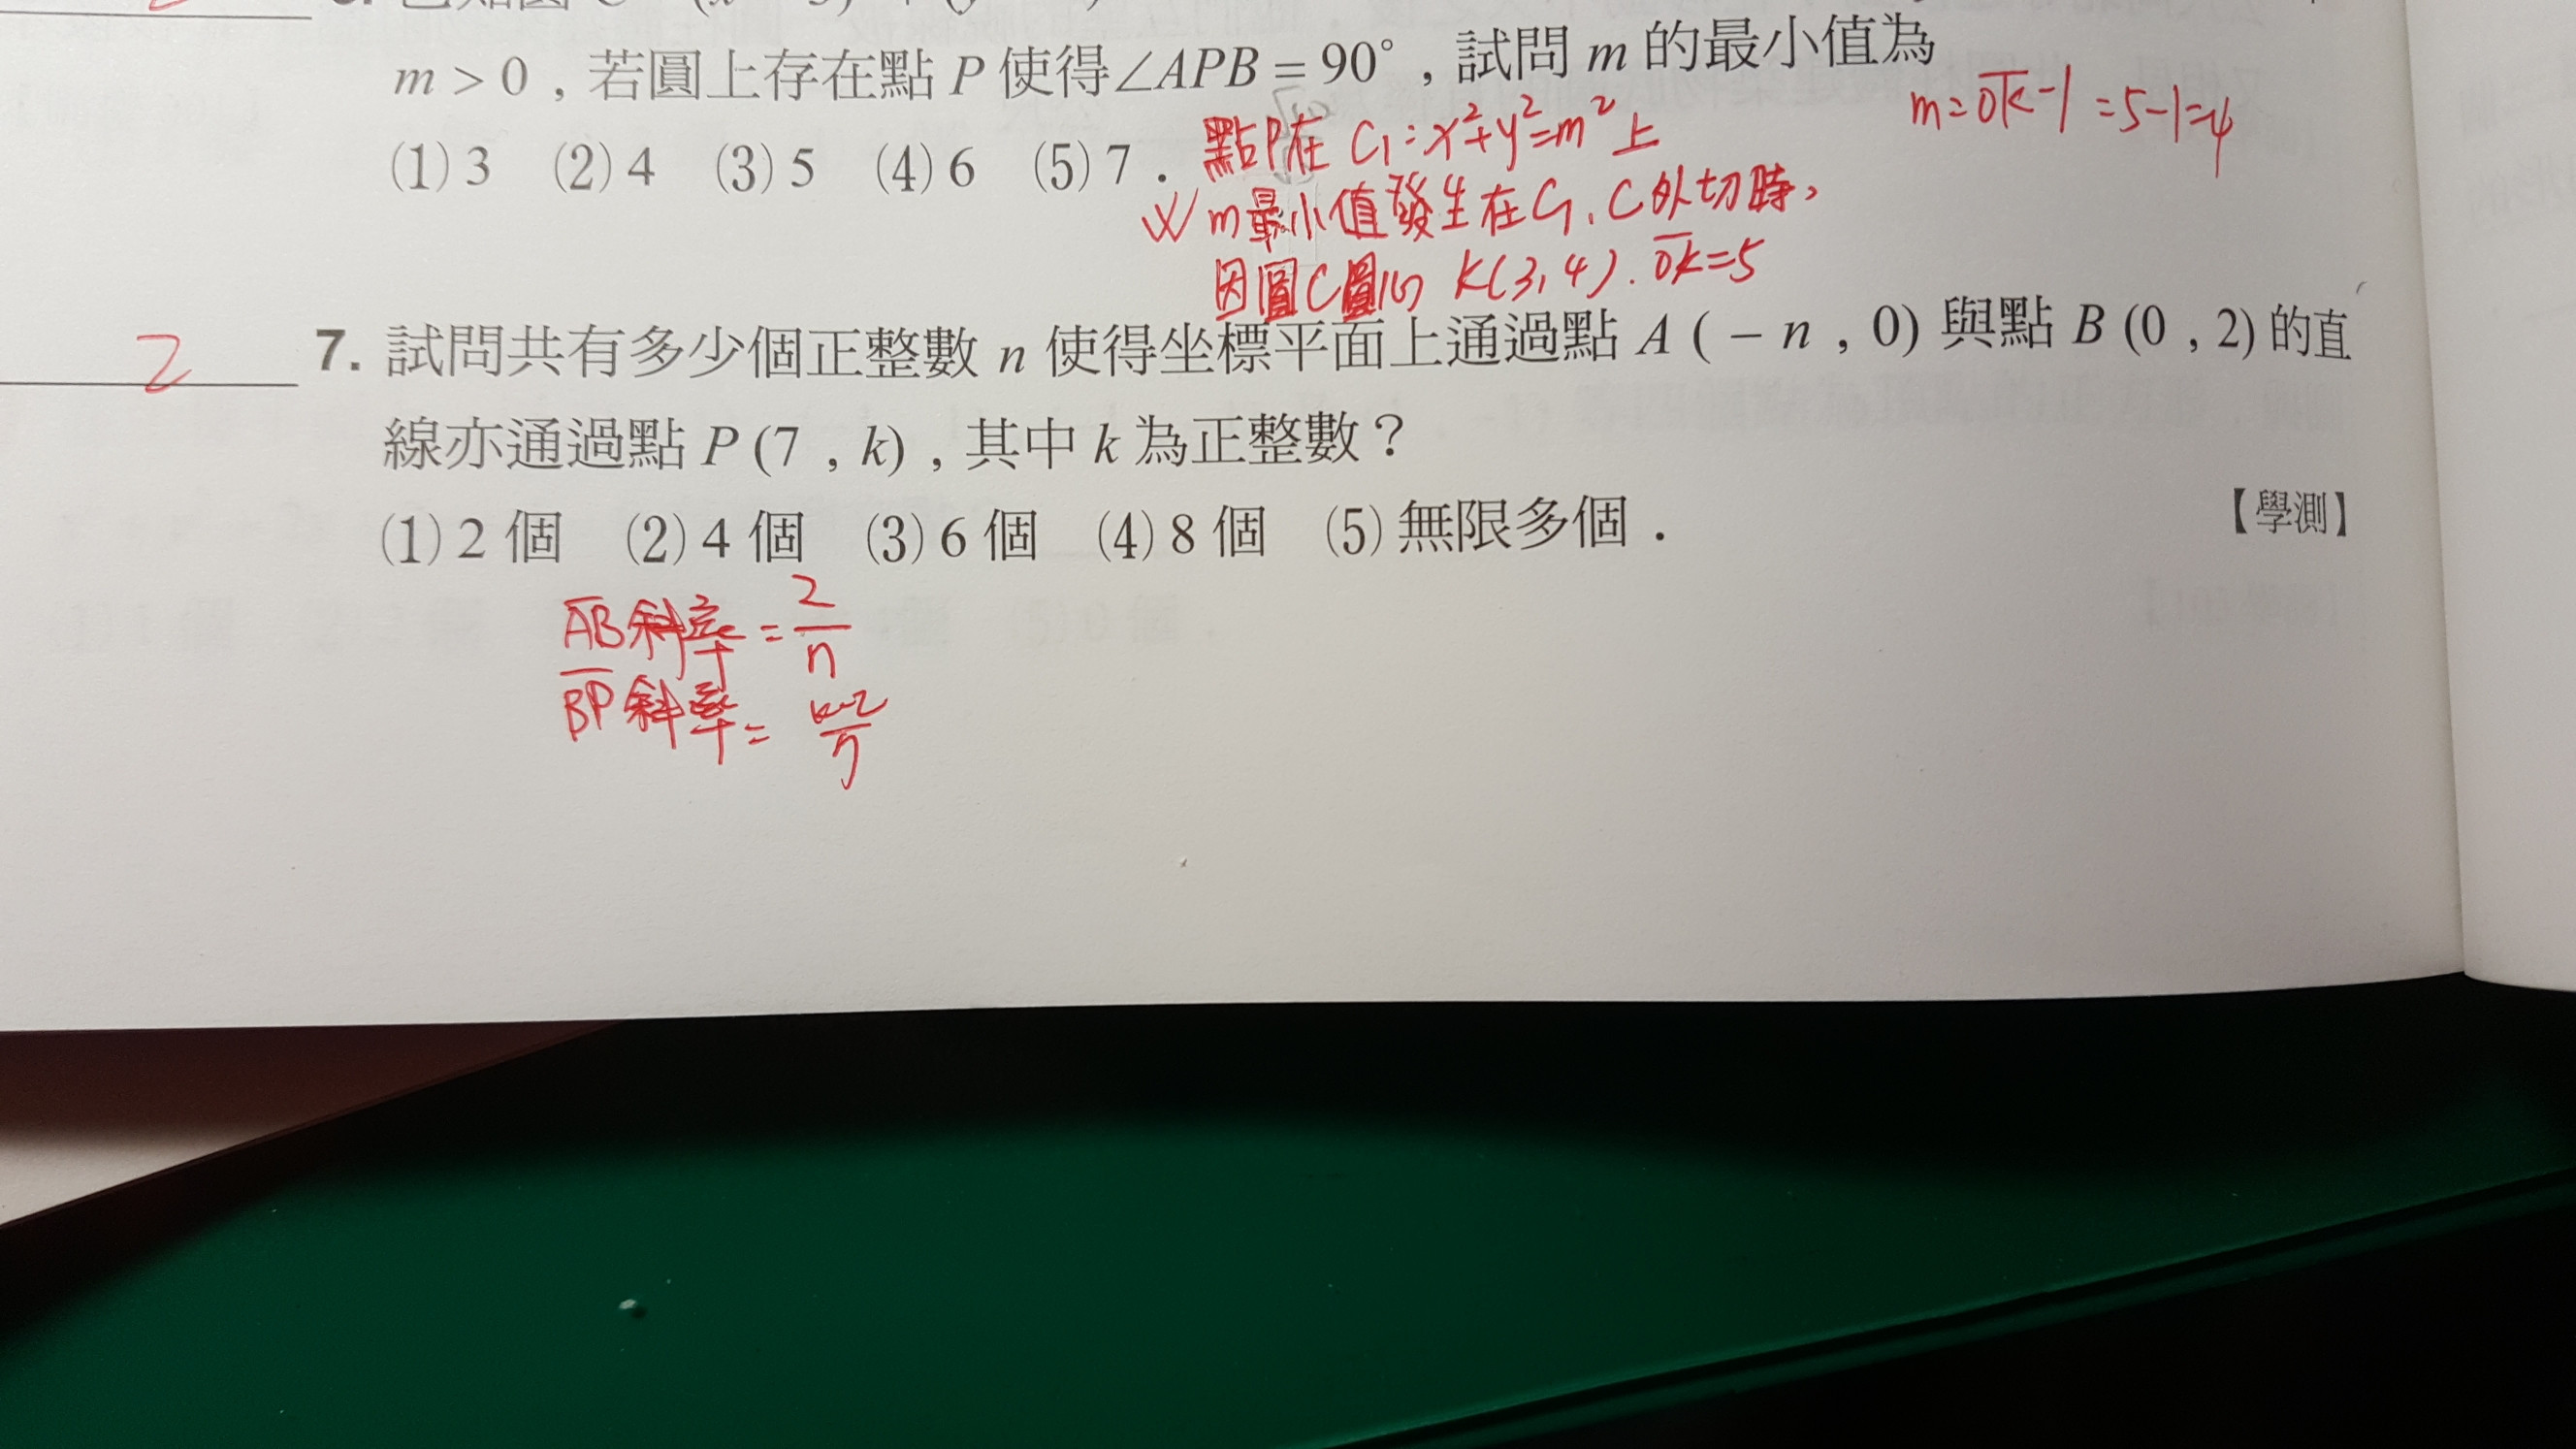 m > 0，若圓上存在點 P 使得∠APB = 90°，試問 m 的最小值為
m = OK - 1 = 5-1=4
(1) 3 (2) 4 (3) 5 (4) 6 (5) 7．
點P在 C₁：x²+y²=m² 上
m最小值發生在C₁、C外切時，
因圓C圓心 K(3,4). OK=5
2
7. 試問共有多少個正整數 n 使得坐標平面上通過點 A (－n , 0) 與點 B (0 , 2) 的直
線亦通過點 P (7 , k)，其中 k 為正整數？
(1) 2 個 (2) 4 個 (3) 6 個 (4) 8 個 (5) 無限多個．
【學測】
AB斜率 = 2/n
BP斜率 = k-2/7